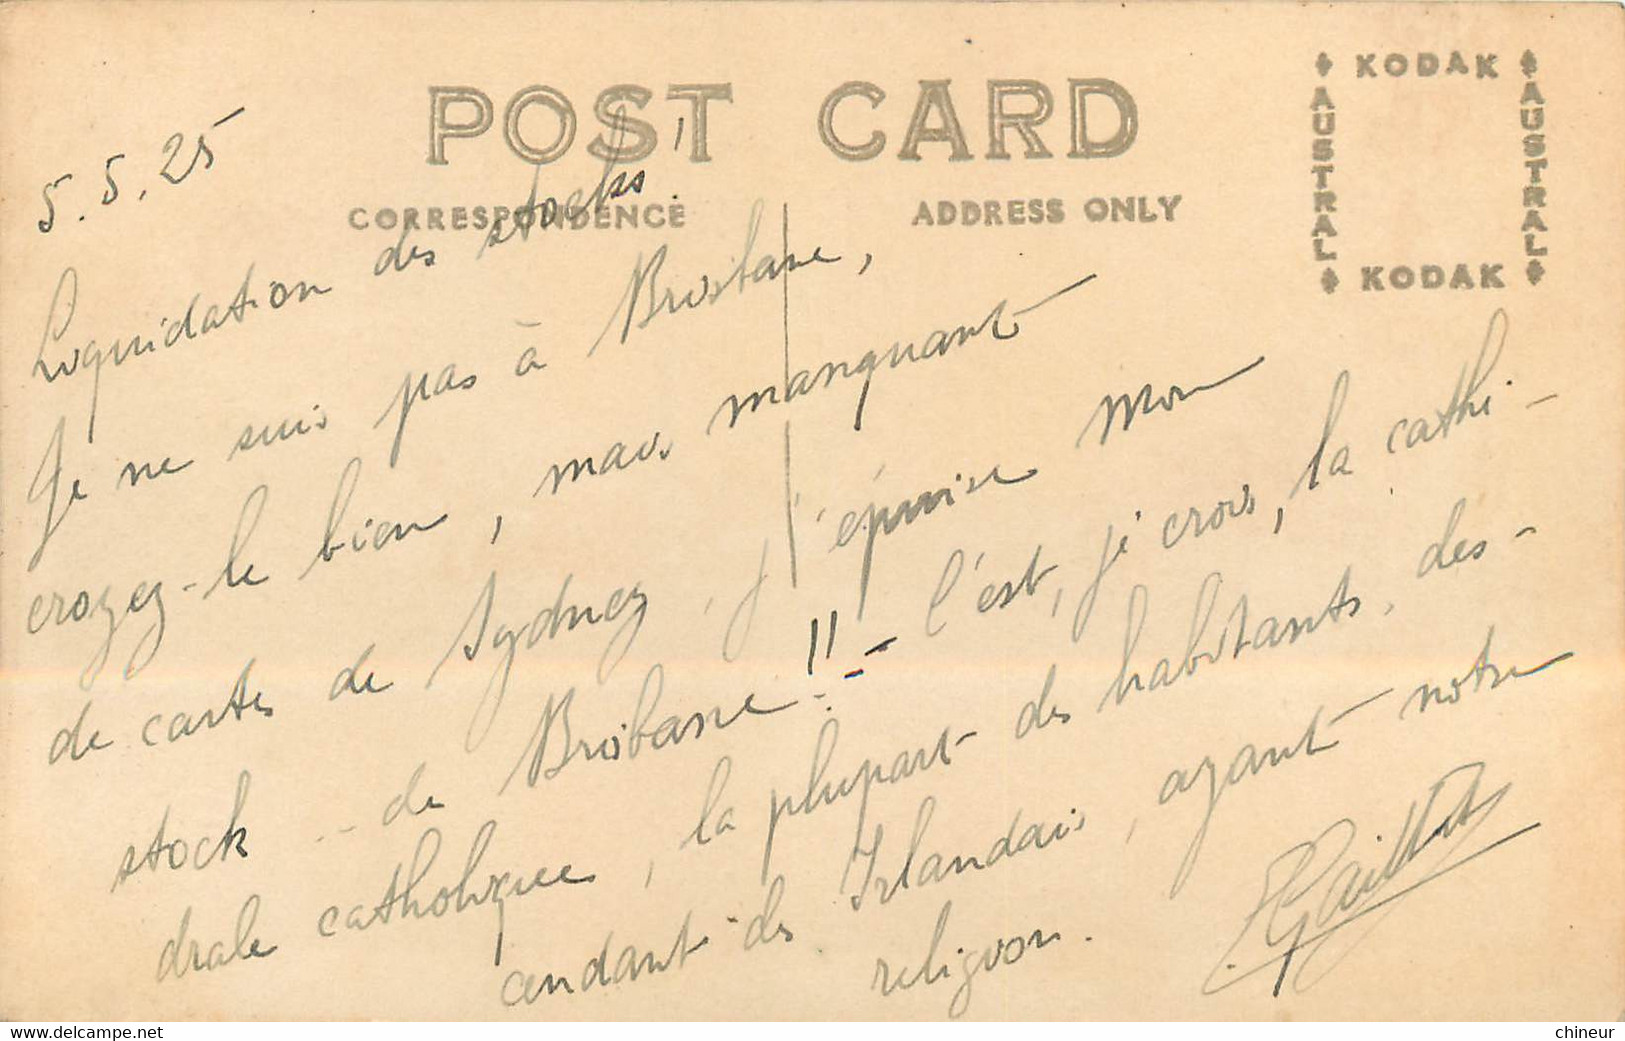 POST CARD
CORRESPONDENCE
ADDRESS ONLY
KODAK
AUSTRAL
AUSTRAL
KODAK
5.5.25
Liquidation des stocks !
Je ne suis pas à Brisbane,
croyez-le bien, mais manquant
de cartes de Sydney, j'épuise mon
stock de Brisbane !! - C'est, je crois, la cathé-
drale catholique, la plupart des habitants des-
cendant des Irlandais, ayant notre
religion.
Gaillot
delcampe.net
chineur